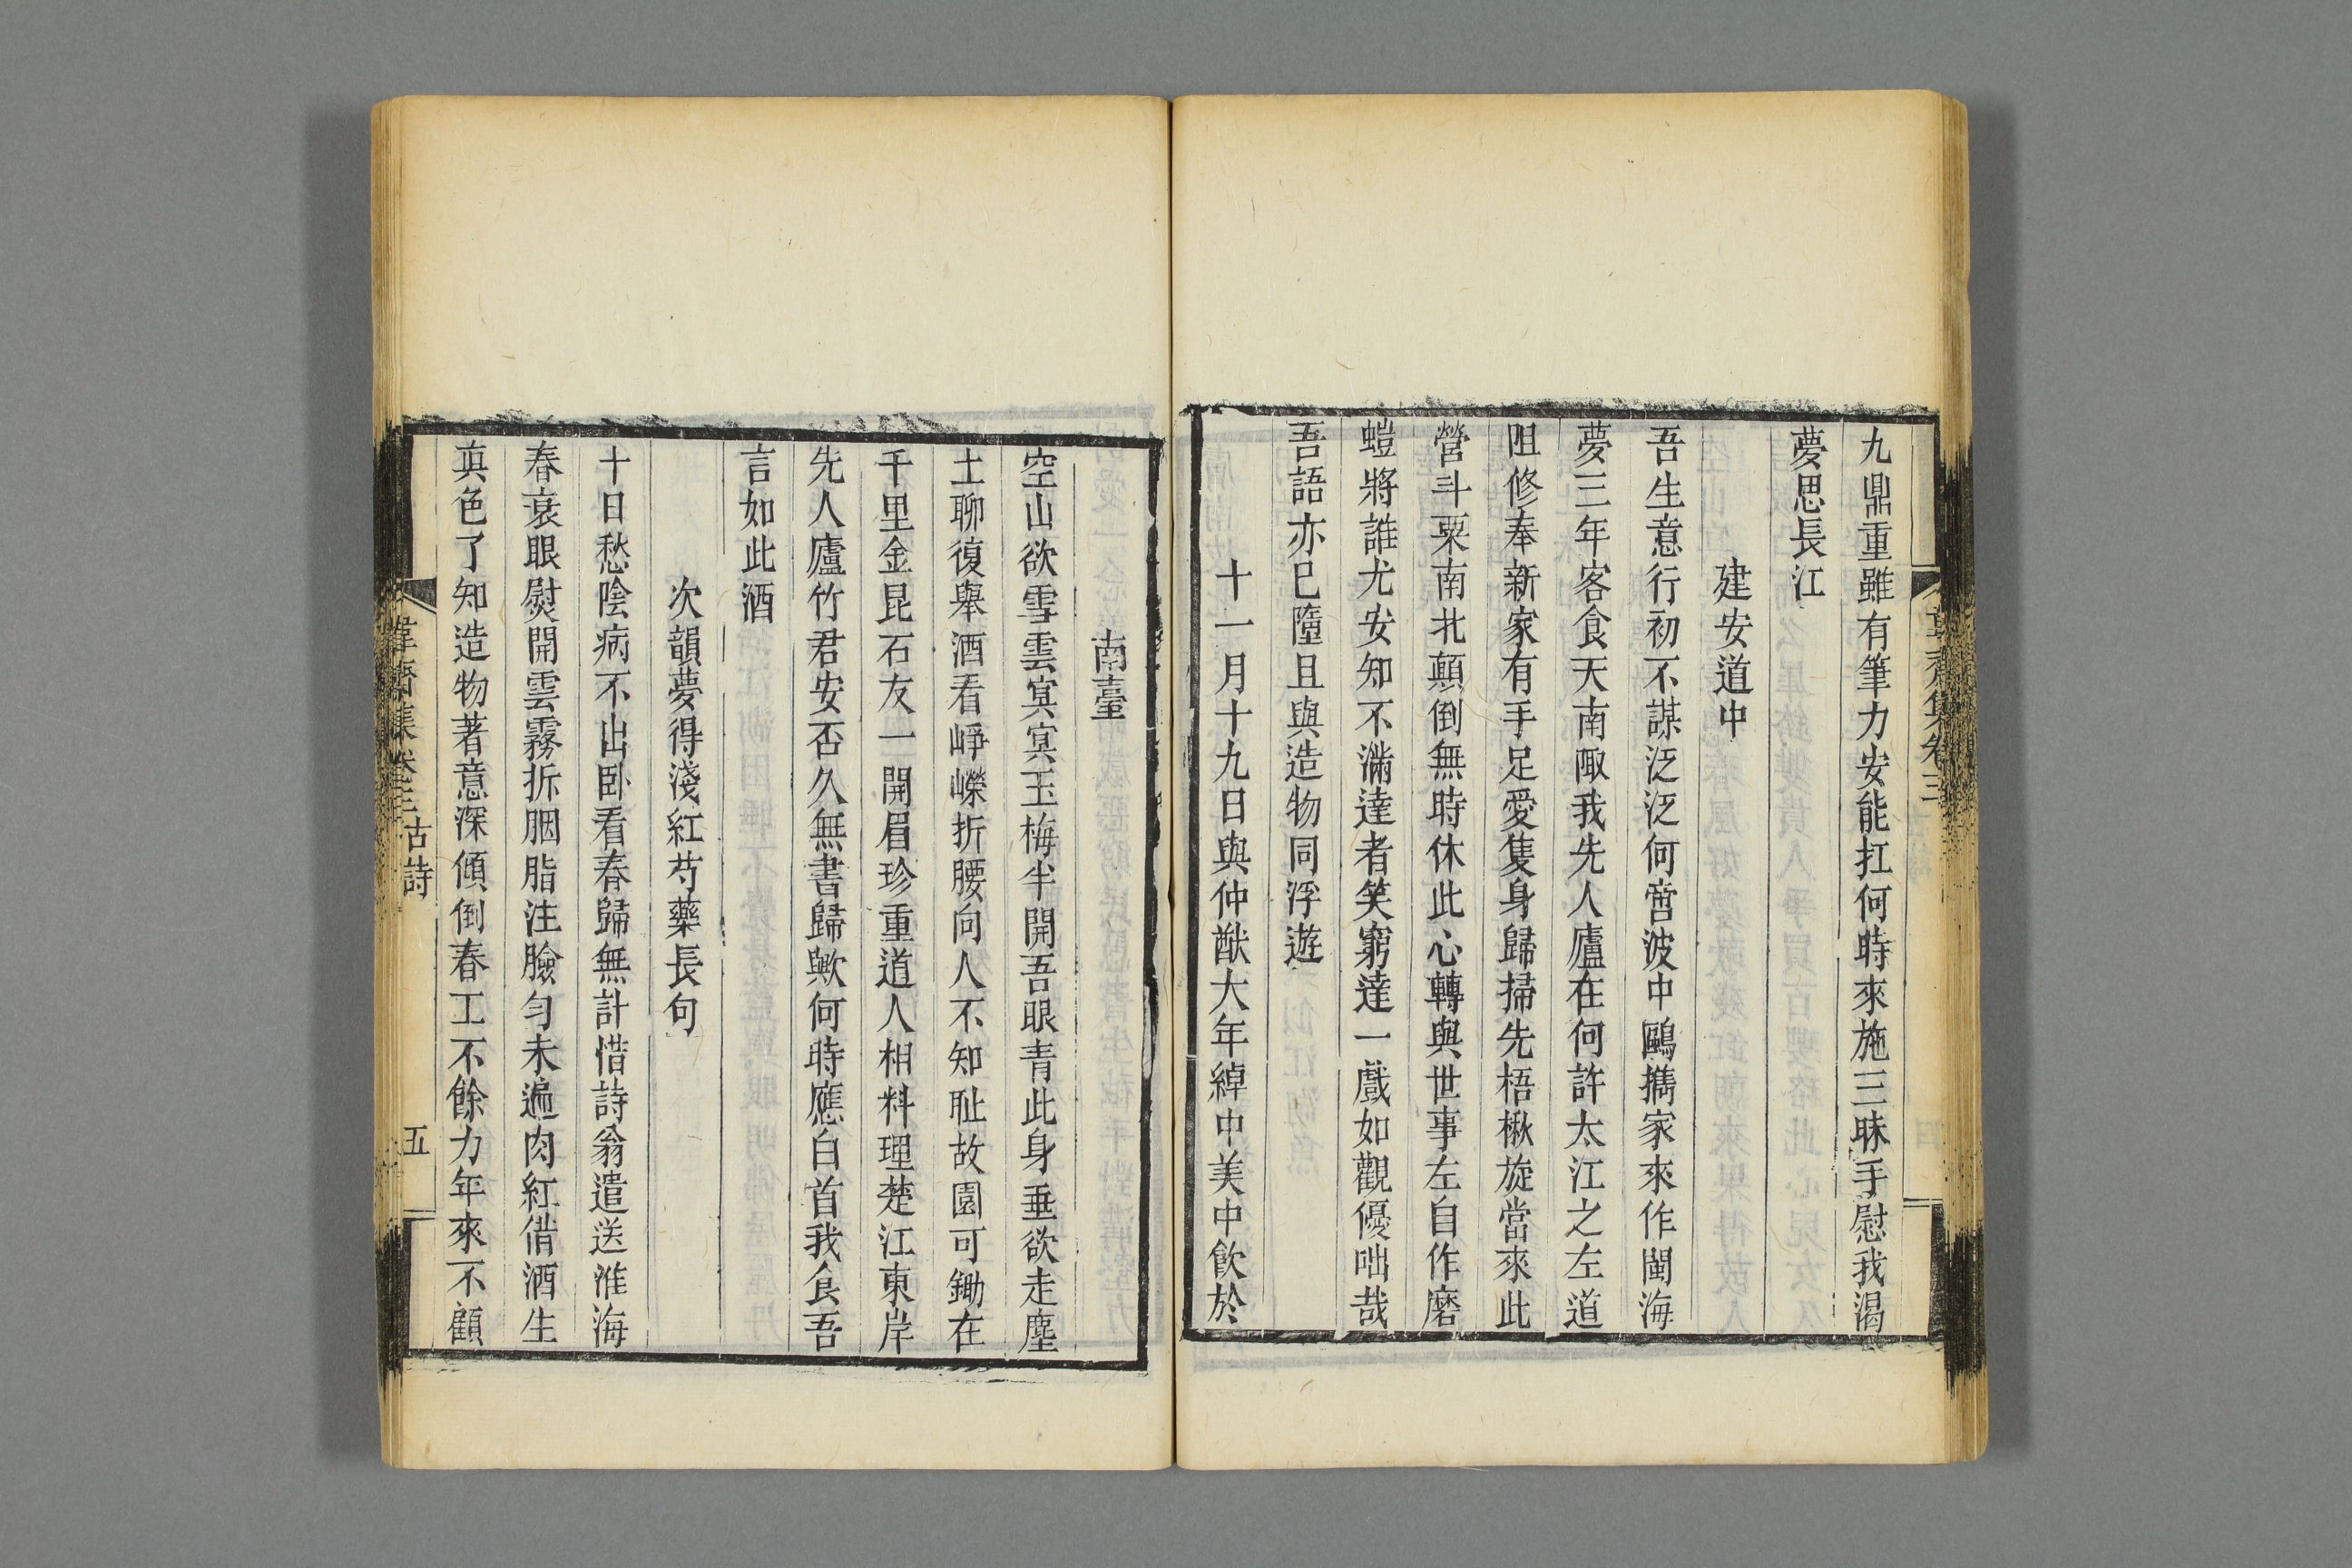 九鼎重雖有筆力安能扛何時來施三昧手慰我渴
夢思長江
建安道中
吾生意行初不謀泛泛何啻波中鷗攜家來作閩海
夢三年客食天南陬我先人廬在何許太江之左道
阻修奉新家有手足愛隻身歸掃先梧楸旋當來此
營斗粟南北顛倒無時休此心轉與世事左自作磨
螘將誰尤安知不滿達者笑窮達一戲如觀優咄哉
吾語亦已隨且與造物同浮遊
十一月十九日與仲猷大年綽中美中飲於
南臺
空山欲雪雲冥冥玉梅半開吾眼青此身垂欲走塵
土聊復舉酒看崢嶸折腰向人不知耻故園可鋤在
千里金昆石友一開眉珍重道人相料理楚江東岸
先人廬竹君安否久無書歸歟何時應白首我食吾
言如此酒
次韻夢得淺紅芍藥長句
十日愁陰病不出卧看春歸無計惜詩翁遣送淮海
春衰眼熨開雲霧拆胭脂注臉勻未遍肉紅借酒生
真色了知造物著意深傾倒春工不餘力年來不顧
韋齋集卷三 古詩 五